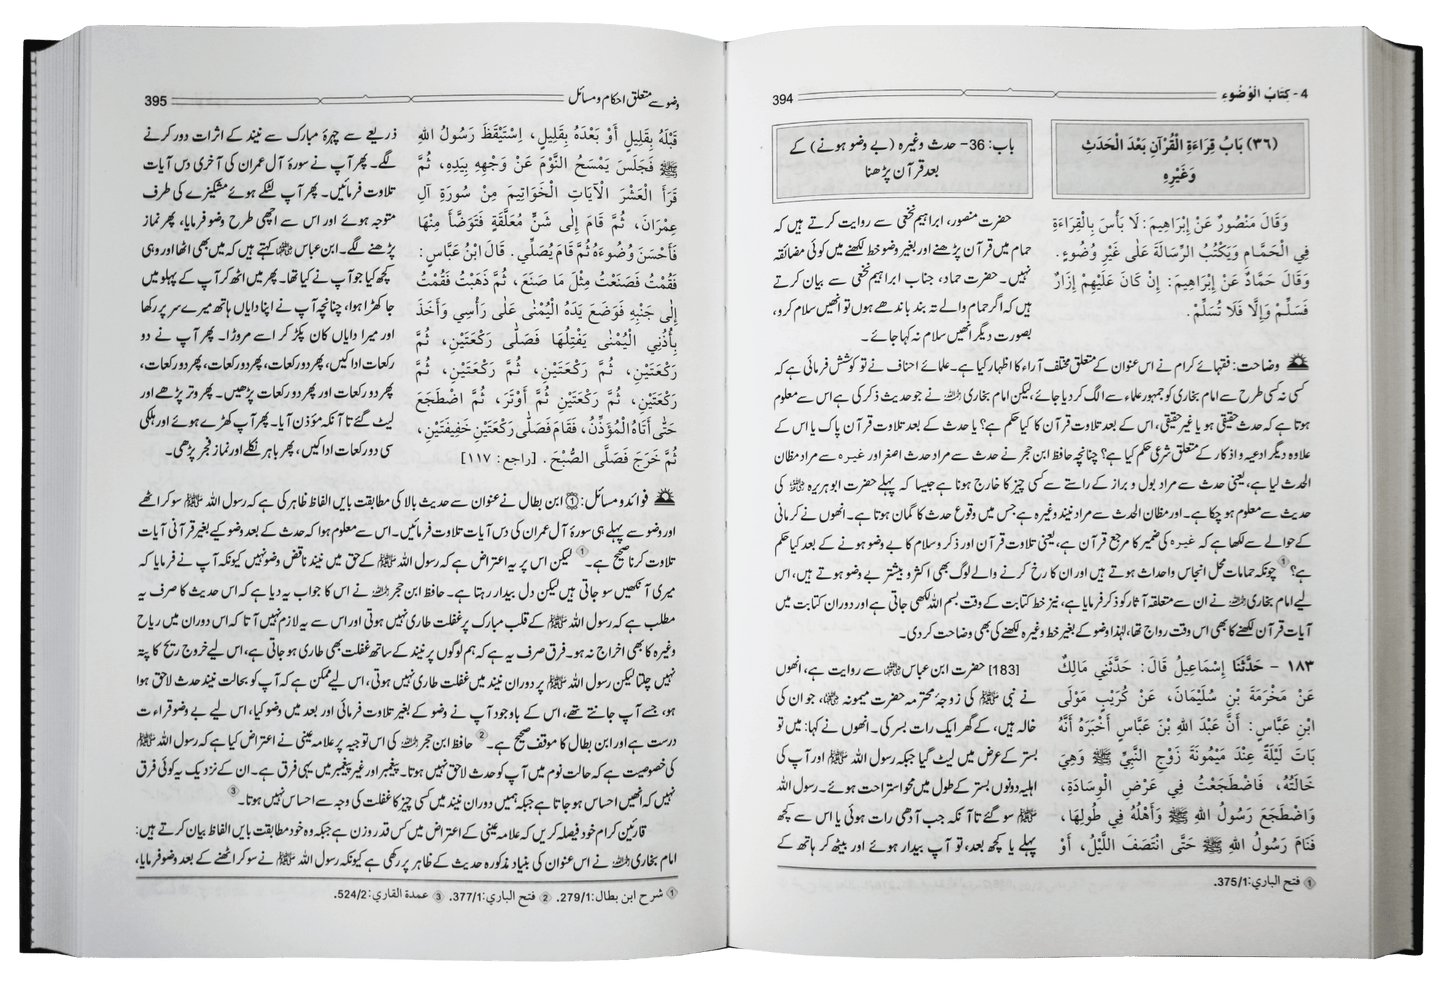 4- كِتَابُ الْوُضُوءِ
394
(٣٦) بَابُ قِرَاءَةِ الْقُرْآنِ بَعْدَ الْحَدَثِ
وَغَيْرِهِ
وَقَالَ مَنْصُورٌ عَنْ إِبْرَاهِيمَ: لَا بَأْسَ بِالْقِرَاءَةِ
فِي الْحَمَّامِ وَيَكْتُبُ الرِّسَالَةَ عَلٰى غَيْرِ وُضُوءٍ.
وَقَالَ حَمَّادٌ عَنْ إِبْرَاهِيمَ: إِنْ كَانَ عَلَيْهِمْ إِزَارٌ
فَسَلِّمْ وَإِلَّا فَلَا تُسَلِّمْ.
باب: 36- حدث وغیرہ (بے وضو ہونے) کے
بعد قرآن پڑھنا
حضرت منصور، ابراہیم نخعی سے روایت کرتے ہیں کہ
حمام میں قرآن پڑھنے اور بغیر وضو خط لکھنے میں کوئی مضائقہ
نہیں۔ حضرت حماد، جناب ابراہیم نخعی سے بیان کرتے
ہیں کہ اگر حمام والے تہ بند باندھے ہوں تو انھیں سلام کرو،
بصورت دیگر انھیں سلام نہ کہا جائے۔
وضاحت: فقہائے کرام نے اس عنوان کے متعلق مختلف آراء کا اظہار کیا ہے۔ علمائے احناف نے تو کوشش فرمائی ہے کہ
کسی نہ کسی طرح سے امام بخاری کو جمہور علماء سے الگ کر دیا جائے، لیکن امام بخاری رحمہ اللہ نے جو حدیث ذکر کی ہے اس سے معلوم
ہوتا ہے کہ حدث حقیقی ہو یا غیر حقیقی، اس کے بعد تلاوت قرآن کا کیا حکم ہے؟ یا حدث کے بعد تلاوت قرآن پاک یا اس کے
علاوہ دیگر ادعیہ و اذکار کے متعلق شرعی حکم کیا ہے؟ چنانچہ حافظ ابن حجر نے حدث سے مراد حدث اصغر اور غیرہ سے مراد مظان
الحدث لیا ہے، یعنی حدث سے مراد بول و براز کے راستے سے کسی چیز کا خارج ہونا ہے جیسا کہ پہلے حضرت ابوہریرہ رضی اللہ عنہ کی
حدیث سے معلوم ہو چکا ہے۔ اور مظان الحدث سے مراد نیند وغیرہ ہے جس میں وقوع حدث کا گمان ہوتا ہے۔ انھوں نے کرمانی
کے حوالے سے لکھا ہے کہ غیرہ کی ضمیر کا مرجع قرآن ہے، یعنی تلاوت قرآن اور ذکر و سلام کا بے وضو ہونے کے بعد کیا حکم
ہے؟① چونکہ حمامات محل انجاس و احداث ہوتے ہیں اور ان کا رخ کرنے والے لوگ بھی اکثر و بیشتر بے وضو ہوتے ہیں، اس
لیے امام بخاری رحمہ اللہ نے ان سے متعلقہ آثار کو ذکر فرمایا ہے، نیز خط کتابت کے وقت بسم اللہ لکھی جاتی ہے اور دوران کتابت میں
آیات قرآن لکھنے کا بھی اس وقت رواج تھا، لہٰذا وضو کے بغیر خط وغیرہ لکھنے کی بھی وضاحت کر دی۔
١٨٣ - حَدَّثَنَا إِسْمَاعِيلُ قَالَ: حَدَّثَنِي مَالِكٌ
عَنْ مَخْرَمَةَ بْنِ سُلَيْمَانَ، عَنْ كُرَيْبٍ مَوْلَى
ابْنِ عَبَّاسٍ: أَنَّ عَبْدَ اللهِ بْنَ عَبَّاسٍ أَخْبَرَهُ أَنَّهُ
بَاتَ لَيْلَةً عِنْدَ مَيْمُونَةَ زَوْجِ النَّبِيِّ ﷺ وَهِيَ
خَالَتُهُ، فَاضْطَجَعْتُ فِي عَرْضِ الْوِسَادَةِ،
وَاضْطَجَعَ رَسُولُ اللهِ ﷺ وَأَهْلُهُ فِي طُولِهَا،
فَنَامَ رَسُولُ اللهِ ﷺ حَتّٰى انْتَصَفَ اللَّيْلُ، أَوْ
[183] حضرت ابن عباس رضی اللہ عنہما سے روایت ہے، انھوں
نے نبی ﷺ کی زوجۂ محترمہ حضرت میمونہ رضی اللہ عنہا، جو ان کی
خالہ ہیں، کے گھر ایک رات بسر کی۔ انھوں نے کہا: میں تو
بستر کے عرض میں لیٹ گیا جبکہ رسول اللہ ﷺ اور آپ کی
اہلیہ دونوں بستر کے طول میں محو استراحت ہوئے۔ رسول اللہ
ﷺ سو گئے تا آنکہ جب آدھی رات ہوئی یا اس سے کچھ
پہلے یا کچھ بعد، تو آپ بیدار ہوئے اور بیٹھ کر ہاتھ کے
① فتح الباري: 375/1.
وضو سے متعلق احکام و مسائل
395
قَبْلَهُ بِقَلِيلٍ أَوْ بَعْدَهُ بِقَلِيلٍ، اِسْتَيْقَظَ رَسُولُ اللهِ
ﷺ فَجَلَسَ يَمْسَحُ النَّوْمَ عَنْ وَجْهِهِ بِيَدِهِ، ثُمَّ
قَرَأَ الْعَشْرَ الْآيَاتِ الْخَوَاتِيمَ مِنْ سُورَةِ آلِ
عِمْرَانَ، ثُمَّ قَامَ إِلٰى شَنٍّ مُعَلَّقَةٍ فَتَوَضَّأَ مِنْهَا
فَأَحْسَنَ وُضُوءَهُ ثُمَّ قَامَ يُصَلِّي. قَالَ ابْنُ عَبَّاسٍ:
فَقُمْتُ فَصَنَعْتُ مِثْلَ مَا صَنَعَ، ثُمَّ ذَهَبْتُ فَقُمْتُ
إِلٰى جَنْبِهِ فَوَضَعَ يَدَهُ الْيُمْنٰى عَلٰى رَأْسِي وَأَخَذَ
بِأُذُنِي الْيُمْنٰى يَفْتِلُهَا فَصَلّٰى رَكْعَتَيْنِ، ثُمَّ
رَكْعَتَيْنِ، ثُمَّ رَكْعَتَيْنِ، ثُمَّ رَكْعَتَيْنِ، ثُمَّ
رَكْعَتَيْنِ، ثُمَّ رَكْعَتَيْنِ ثُمَّ أَوْتَرَ، ثُمَّ اضْطَجَعَ
حَتّٰى أَتَاهُ الْمُؤَذِّنُ، فَقَامَ فَصَلّٰى رَكْعَتَيْنِ خَفِيفَتَيْنِ،
ثُمَّ خَرَجَ فَصَلَّى الصُّبْحَ. [راجع: ١١٧]
ذریعے سے چہرۂ مبارک سے نیند کے اثرات دور کرنے
لگے۔ پھر آپ نے سورۂ آل عمران کی آخری دس آیات
تلاوت فرمائیں۔ پھر آپ لٹکے ہوئے مشکیزے کی طرف
متوجہ ہوئے اور اس سے اچھی طرح وضو فرمایا، پھر نماز
پڑھنے لگے۔ ابن عباس رضی اللہ عنہما کہتے ہیں کہ میں بھی اٹھا اور وہی
کچھ کیا جو آپ نے کیا تھا۔ پھر میں اٹھ کر آپ کے پہلو میں
جا کھڑا ہوا، چنانچہ آپ نے اپنا دایاں ہاتھ میرے سر پر رکھا
اور میرا دایاں کان پکڑ کر اسے مروڑا۔ پھر آپ نے دو
رکعات ادا کیں، پھر دو رکعات، پھر دو رکعات، پھر دو رکعات،
پھر دو رکعات اور پھر دو رکعات پڑھیں۔ پھر وتر پڑھے اور
لیٹ گئے تا آنکہ مؤذن آیا۔ پھر آپ کھڑے ہوئے اور ہلکی
سی دو رکعات ادا کیں، پھر باہر نکلے اور نماز فجر پڑھی۔
فوائد و مسائل: ① ابن بطال نے عنوان سے حدیث بالا کی مطابقت بایں الفاظ ظاہر کی ہے کہ رسول اللہ ﷺ سو کر اٹھے
اور وضو سے پہلے ہی سورۂ آل عمران کی دس آیات تلاوت فرمائیں۔ اس سے معلوم ہوا کہ حدث کے بعد وضو کیے بغیر قرآنی آیات
تلاوت کرنا صحیح ہے۔① لیکن اس پر یہ اعتراض ہے کہ رسول اللہ ﷺ کے حق میں نیند ناقض وضو نہیں کیونکہ آپ نے فرمایا کہ
میری آنکھیں سو جاتی ہیں لیکن دل بیدار رہتا ہے۔ حافظ ابن حجر رحمہ اللہ نے اس کا جواب یہ دیا ہے کہ اس حدیث کا صرف یہ
مطلب ہے کہ رسول اللہ ﷺ کے قلب مبارک پر غفلت طاری نہیں ہوتی اور اس سے یہ لازم نہیں آتا کہ اس دوران میں ریاح
وغیرہ کا بھی اخراج نہ ہو۔ فرق صرف یہ ہے کہ ہم لوگوں پر نیند کے ساتھ غفلت بھی طاری ہو جاتی ہے، اس لیے خروج ریح کا پتہ
نہیں چلتا لیکن رسول اللہ ﷺ پر دوران نیند میں غفلت طاری نہیں ہوتی، اس لیے ممکن ہے کہ آپ کو بحالت نیند حدث لاحق ہوا
ہو، جسے آپ جانتے تھے، اس کے باوجود آپ نے وضو کے بغیر تلاوت فرمائی اور بعد میں وضو کیا، اس لیے بے وضو قراءت
درست ہے اور ابن بطال کا موقف صحیح ہے۔② حافظ ابن حجر رحمہ اللہ کی اس توجیہ پر علامہ عینی نے اعتراض کیا ہے کہ رسول اللہ ﷺ
کی خصوصیت ہے کہ حالت نوم میں آپ کو حدث لاحق نہیں ہوتا۔ پیغمبر اور غیر پیغمبر میں یہی فرق ہے۔ ان کے نزدیک یہ کوئی فرق
نہیں کہ انھیں احساس ہو جاتا ہے جبکہ ہمیں دوران نیند میں کسی چیز کا غفلت کی وجہ سے احساس نہیں ہوتا۔③
قارئین کرام خود فیصلہ کریں کہ علامہ عینی کے اعتراض میں کس قدر وزن ہے جبکہ وہ خود مطابقت بایں الفاظ بیان کرتے ہیں:
امام بخاری رحمہ اللہ نے اس عنوان کی بنیاد مذکورہ حدیث کے ظاہر پر رکھی ہے کیونکہ رسول اللہ ﷺ نے سو کر اٹھنے کے بعد وضو فرمایا،
① شرح ابن بطال: 279/1. ② فتح الباري: 377/1. ③ عمدة القاري: 524/2.